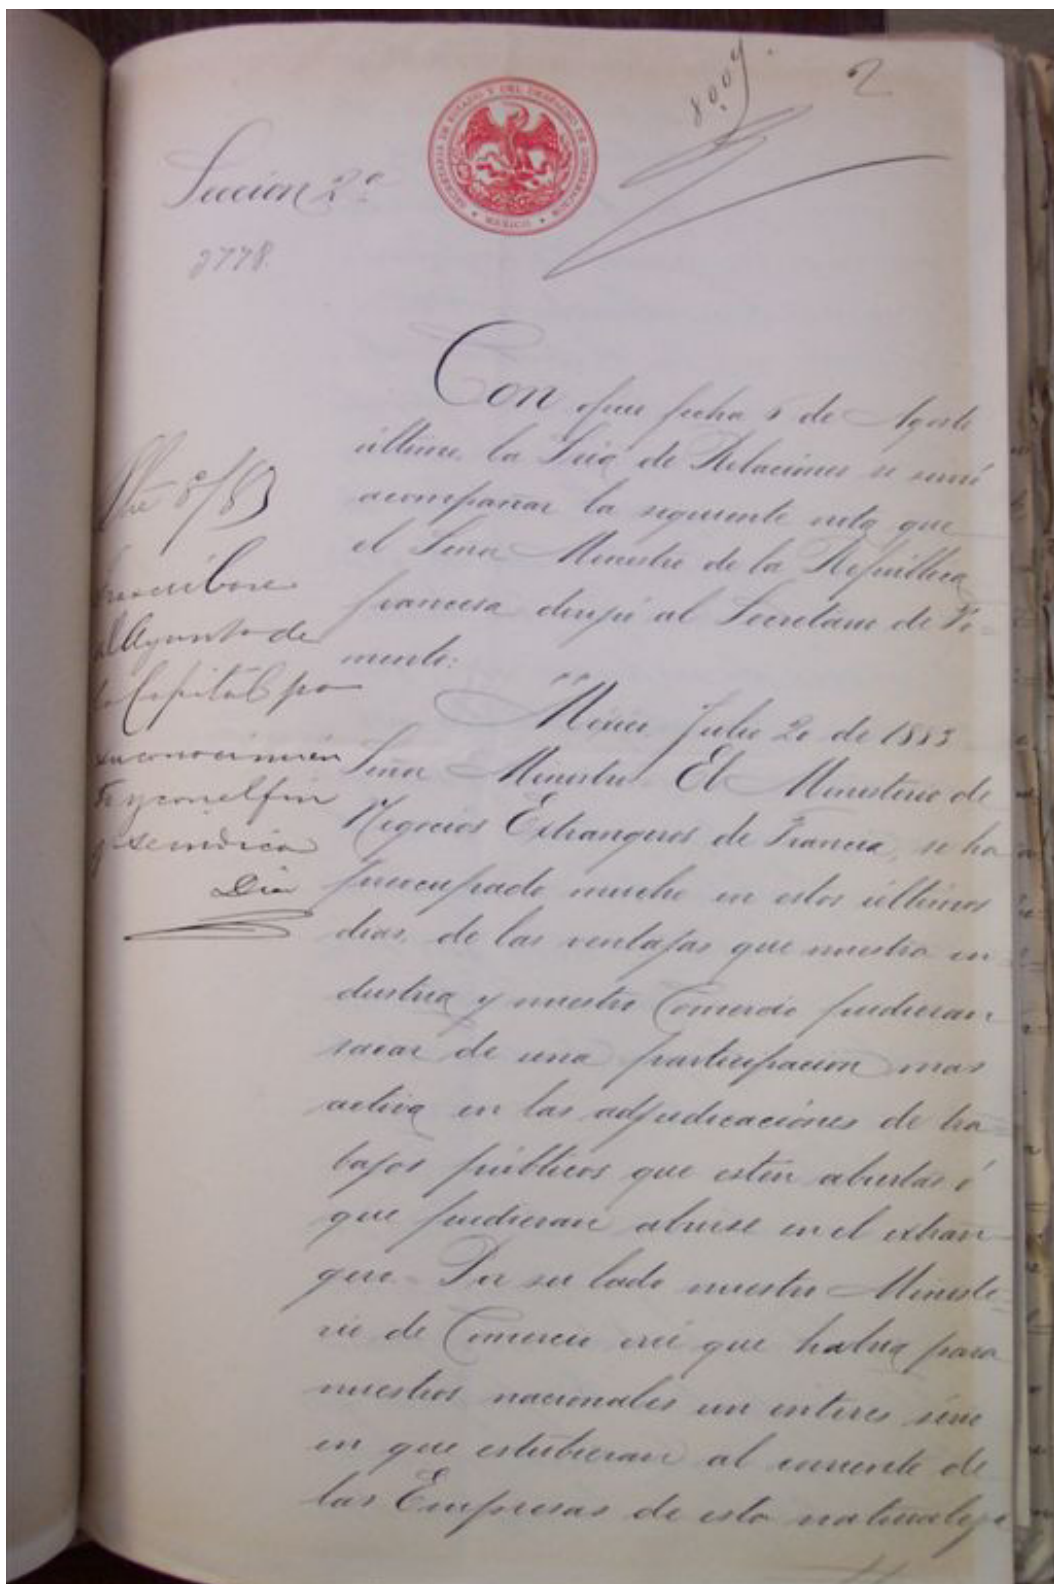 8009.
2
SECRETARIA DE ESTADO Y DEL DESPACHO DE GOBERNACION
★ MEXICO ★
Seccion 2ª
3778.
Con que fecha 6 de Agosto
último, la Sría de Relaciones se sirvió
acompañar la siguiente nota que
el Señor Ministro de la República
francesa dirijió al Secretario de Fo-
mento:
""México Julio 20 de 1883
Señor Ministro El Ministerio de
Negocios Extrangeros de Francia, se ha
preocupado mucho en estos últimos
dias, de las ventajas que nuestra in
dustria y nuestro Comercio pudieran
sacar de una participacion mas
activa en las adjudicaciones de tra-
bajos públicos que estén abiertas ó
que pudieran abrirse en el extran-
gero. Por su lado nuestro Ministe-
rio de Comercio cree que habria para
nuestros nacionales un interes sério
en que estubieran al corriente de
las Empresas de esta naturaleza
8/83
Trascribase
al Ayunto de
la Capital pa
su conocimien
to y con el fin
q. se indica
Diez